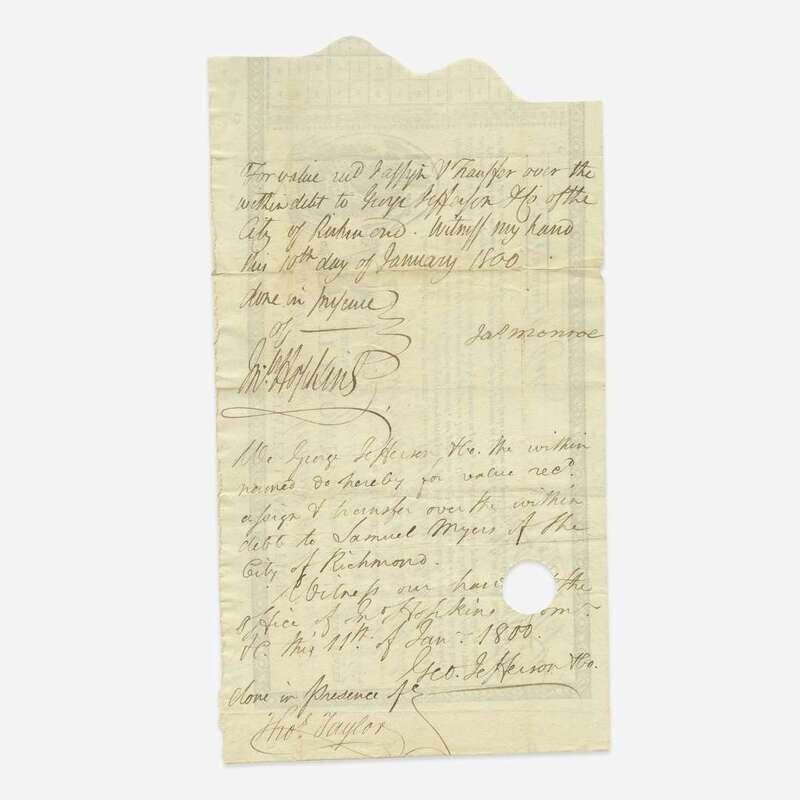 For value recd I assign & Transfer over the
within debt to George Jefferson & Co of the
City of Richmond. Witness my hand
this 10th day of January 1800
done in presence
of
Jas Monroe
Jno Hopkins
We George Jefferson, & Co. the within
named do hereby for value recd.
assign & transfer over the within
debt to Samuel Myers of the
City of Richmond.
Witness our the
office of Jno Hopkins
&c. this 11th. of Jany. 1800.
Geo. Jefferson & Co.
done in Presence of
Thos Taylor